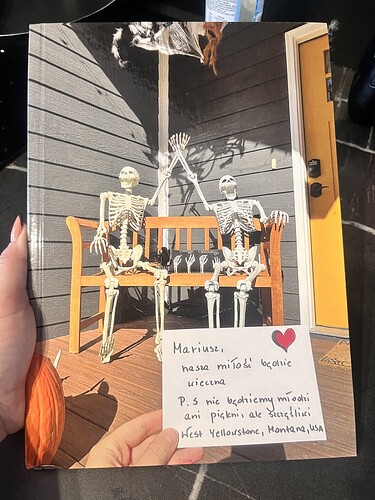 Mariusz,
nasza miłość będzie
wieczna
P.S nie będziemy młodzi
ani piękni, ale szczęśliwi
West Yellowstone, Montana, USA